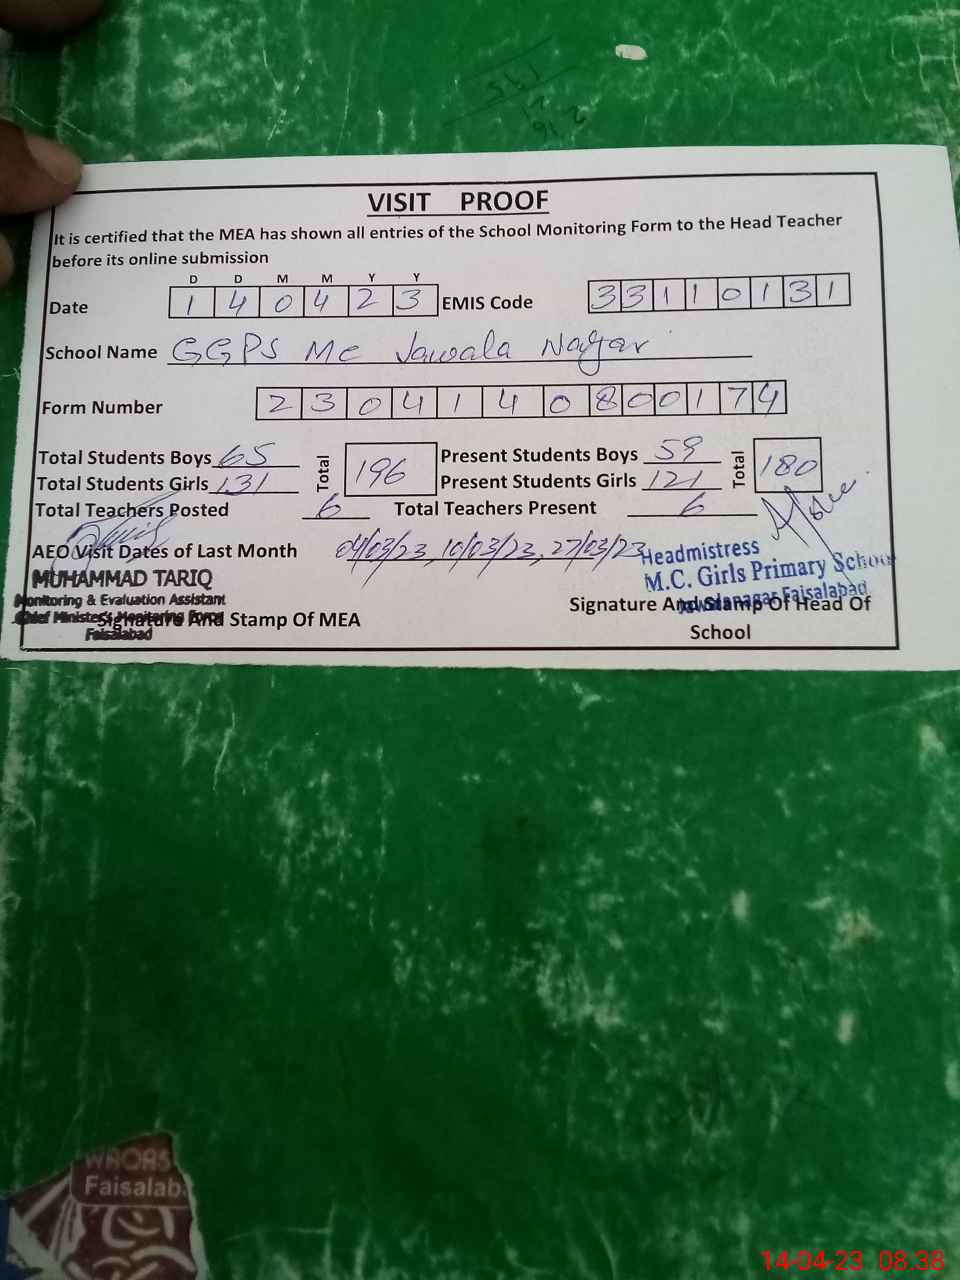 VISIT PROOF
It is certified that the MEA has shown all entries of the School Monitoring Form to the Head Teacher
before its online submission
D D M M Y Y
Date 1 4 0 4 2 3 EMIS Code 3 3 1 1 0 1 3 1
School Name GGPS MC Jawala Nagar
Form Number 2 3 0 4 1 4 0 8 0 0 1 7 4
Total Students Boys 65 Total 196 Present Students Boys 59 Total 180
Total Students Girls 131 Present Students Girls 121
Total Teachers Posted 6 Total Teachers Present 6
AEO Visit Dates of Last Month 04/03/23, 10/03/23, 27/03/23
Headmistress
M.C. Girls Primary School
Jawalanagar Faisalabad
MUHAMMAD TARIQ
Monitoring & Evaluation Assistant
Chief Minister's Monitoring Force
Faisalabad
Signature And Stamp Of MEA
Signature And Stamp Of Head Of
School
Faisalab
14-04-23 08.38